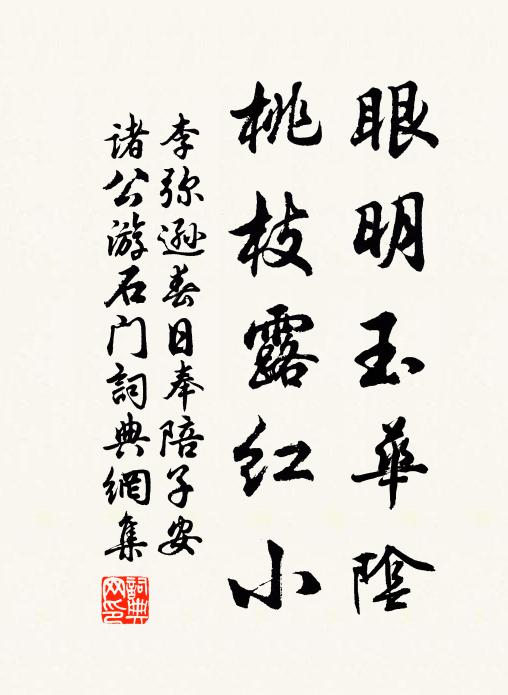 眼明玉華陰
桃枝露红小
李弥遜春日奉陪子安
诸公游石门詞典網集
詞典網印